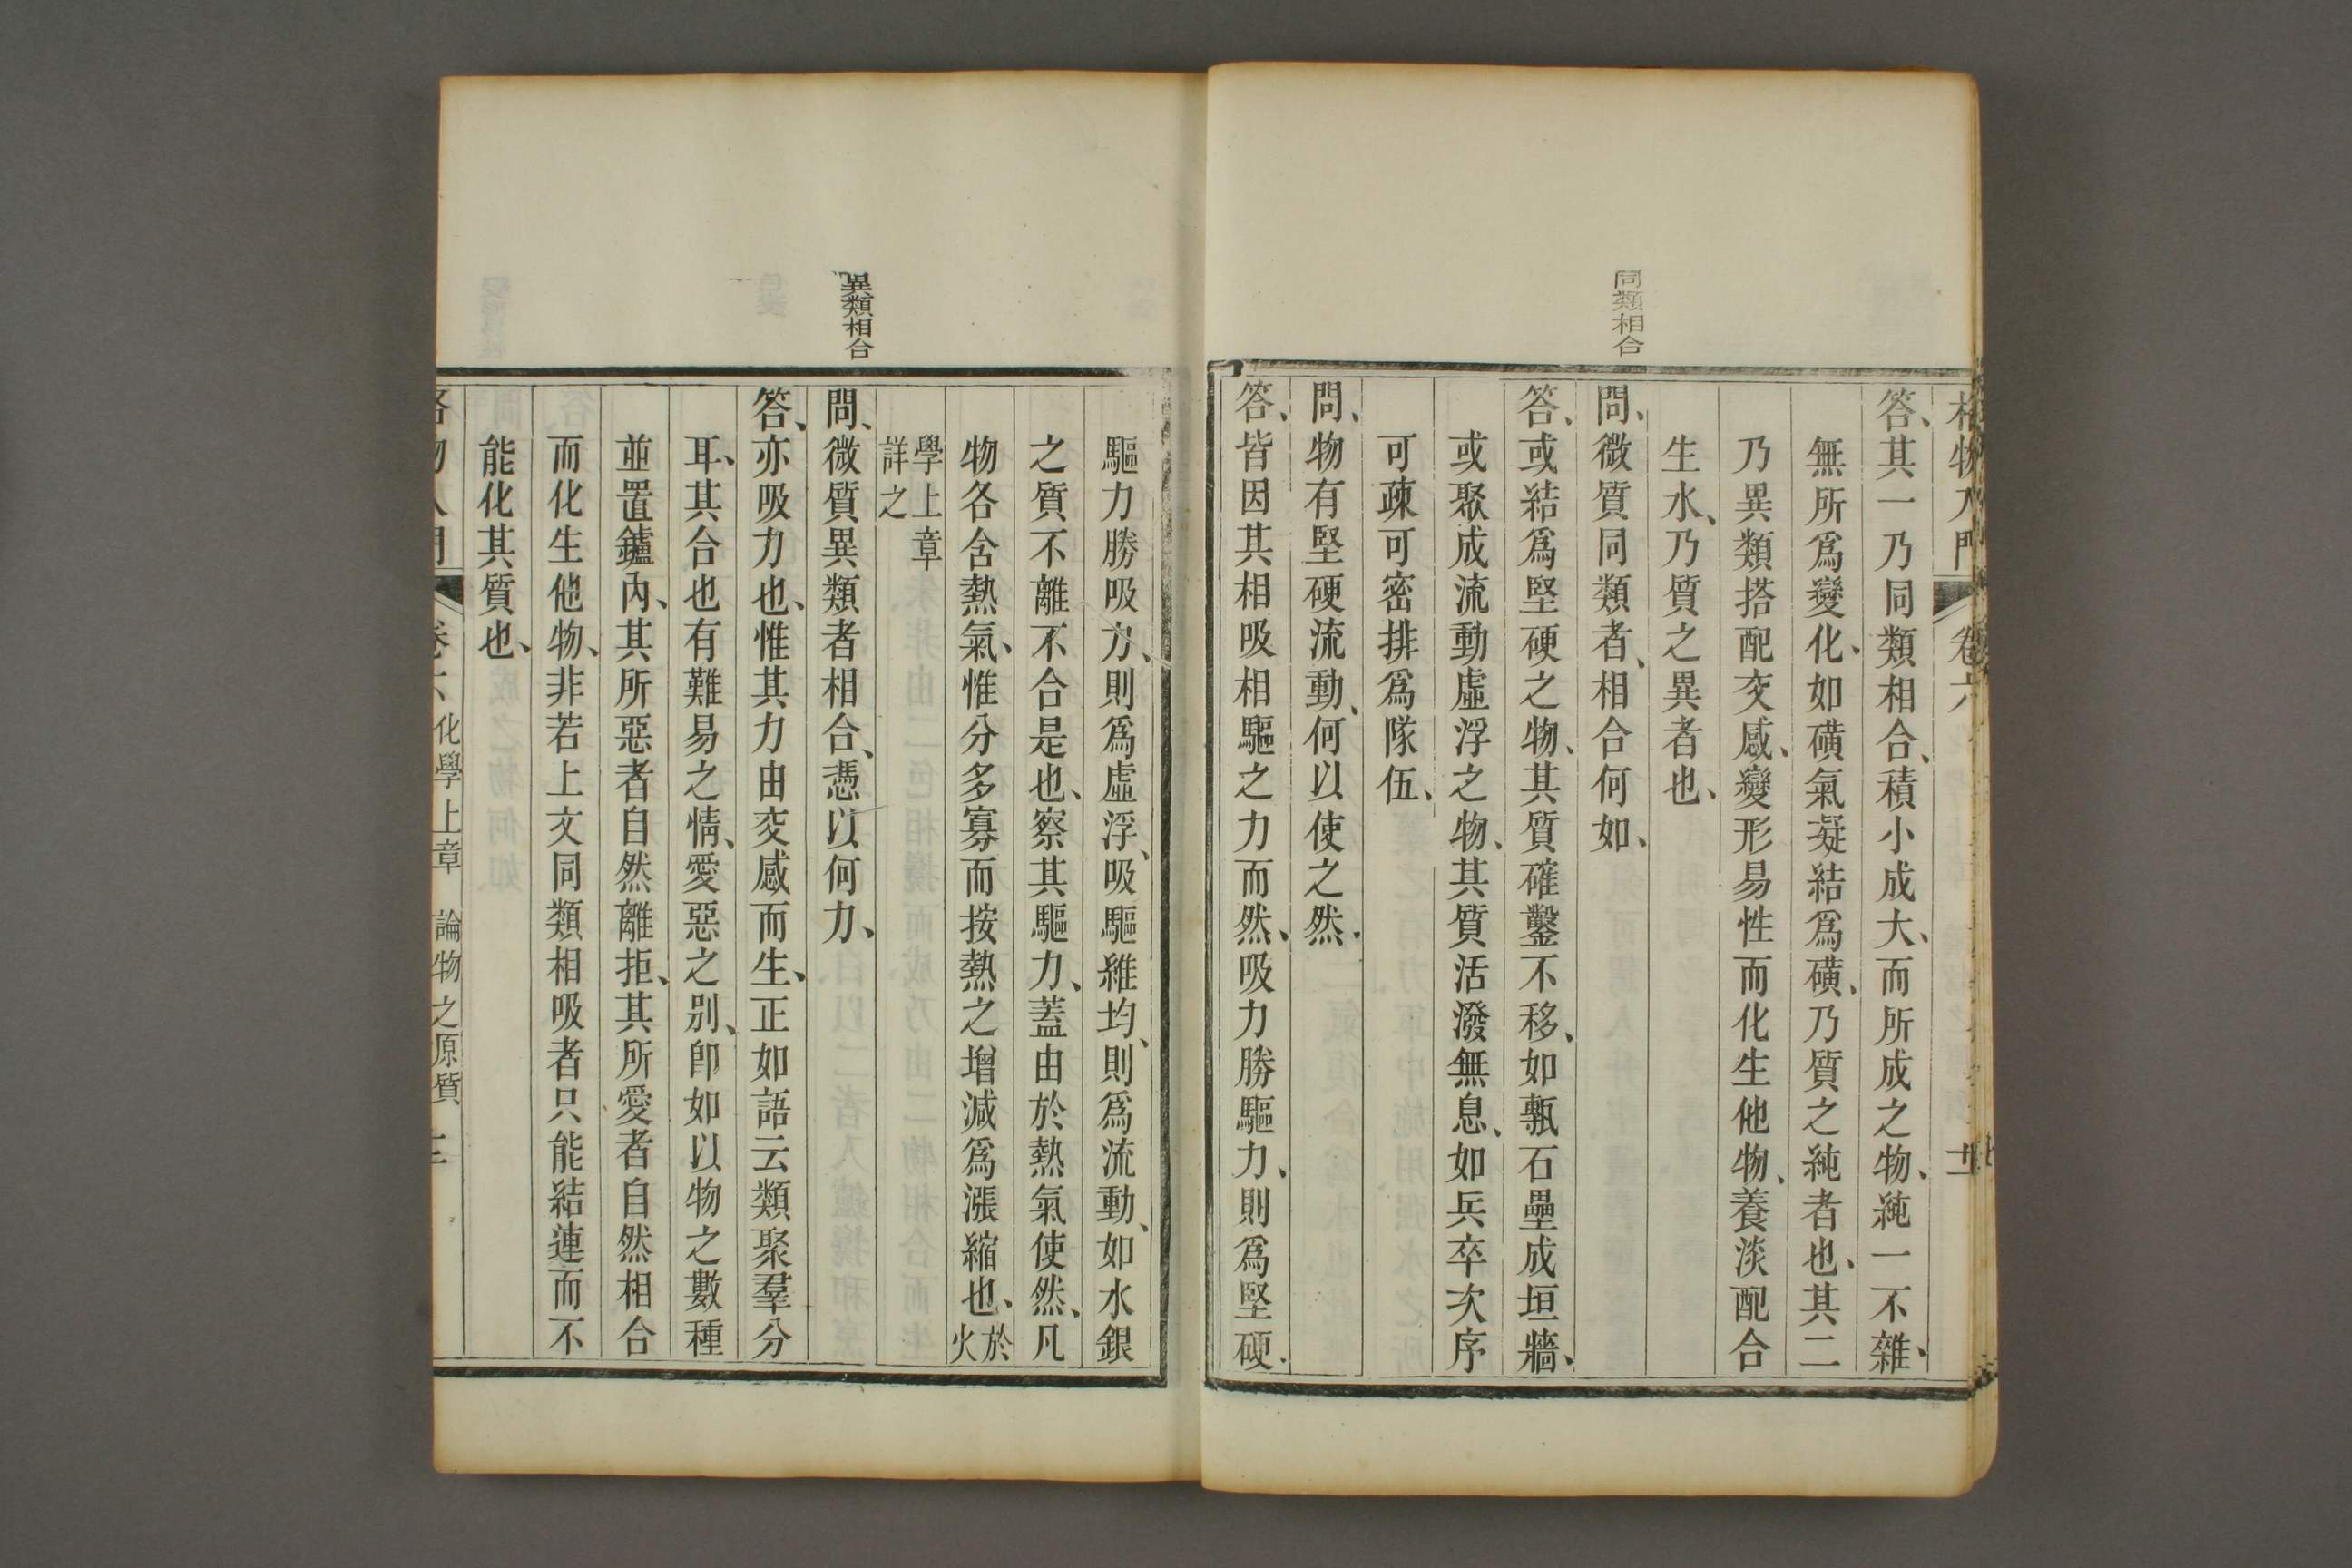 格物入門 卷六
答、其一乃同類相合、積小成大、而所成之物、純一不雜、
無所爲變化、如磺氣凝結爲磺、乃質之純者也、其二
乃異類搭配交感、變形易性而化生他物、養淡配合
生水、乃質之異者也、
同類相合
問、微質同類者、相合何如、
答、或結爲堅硬之物、其質確鑿不移、如甎石壘成垣牆、
或聚成流動虛浮之物、其質活潑無息、如兵卒次序
可疎可密排爲隊伍、
問、物有堅硬流動、何以使之然、
答、皆因其相吸相驅之力而然、吸力勝驅力、則爲堅硬、
驅力勝吸力、則爲虛浮、吸驅維均、則爲流動、如水銀
之質不離不合是也、察其驅力、蓋由於熱氣使然、凡
物各含熱氣、惟分多寡而按熱之增減爲漲縮也、於火
學上章
詳之
異類相合
問、微質異類者相合、憑以何力、
答、亦吸力也、惟其力由交感而生、正如語云類聚羣分
耳、其合也有難易之情、愛惡之別、卽如以物之數種
並置鑪內、其所惡者自然離拒、其所愛者自然相合
而化生他物、非若上文同類相吸者只能結連而不
能化其質也、
格物入門 卷六 化學上章 論物之原質